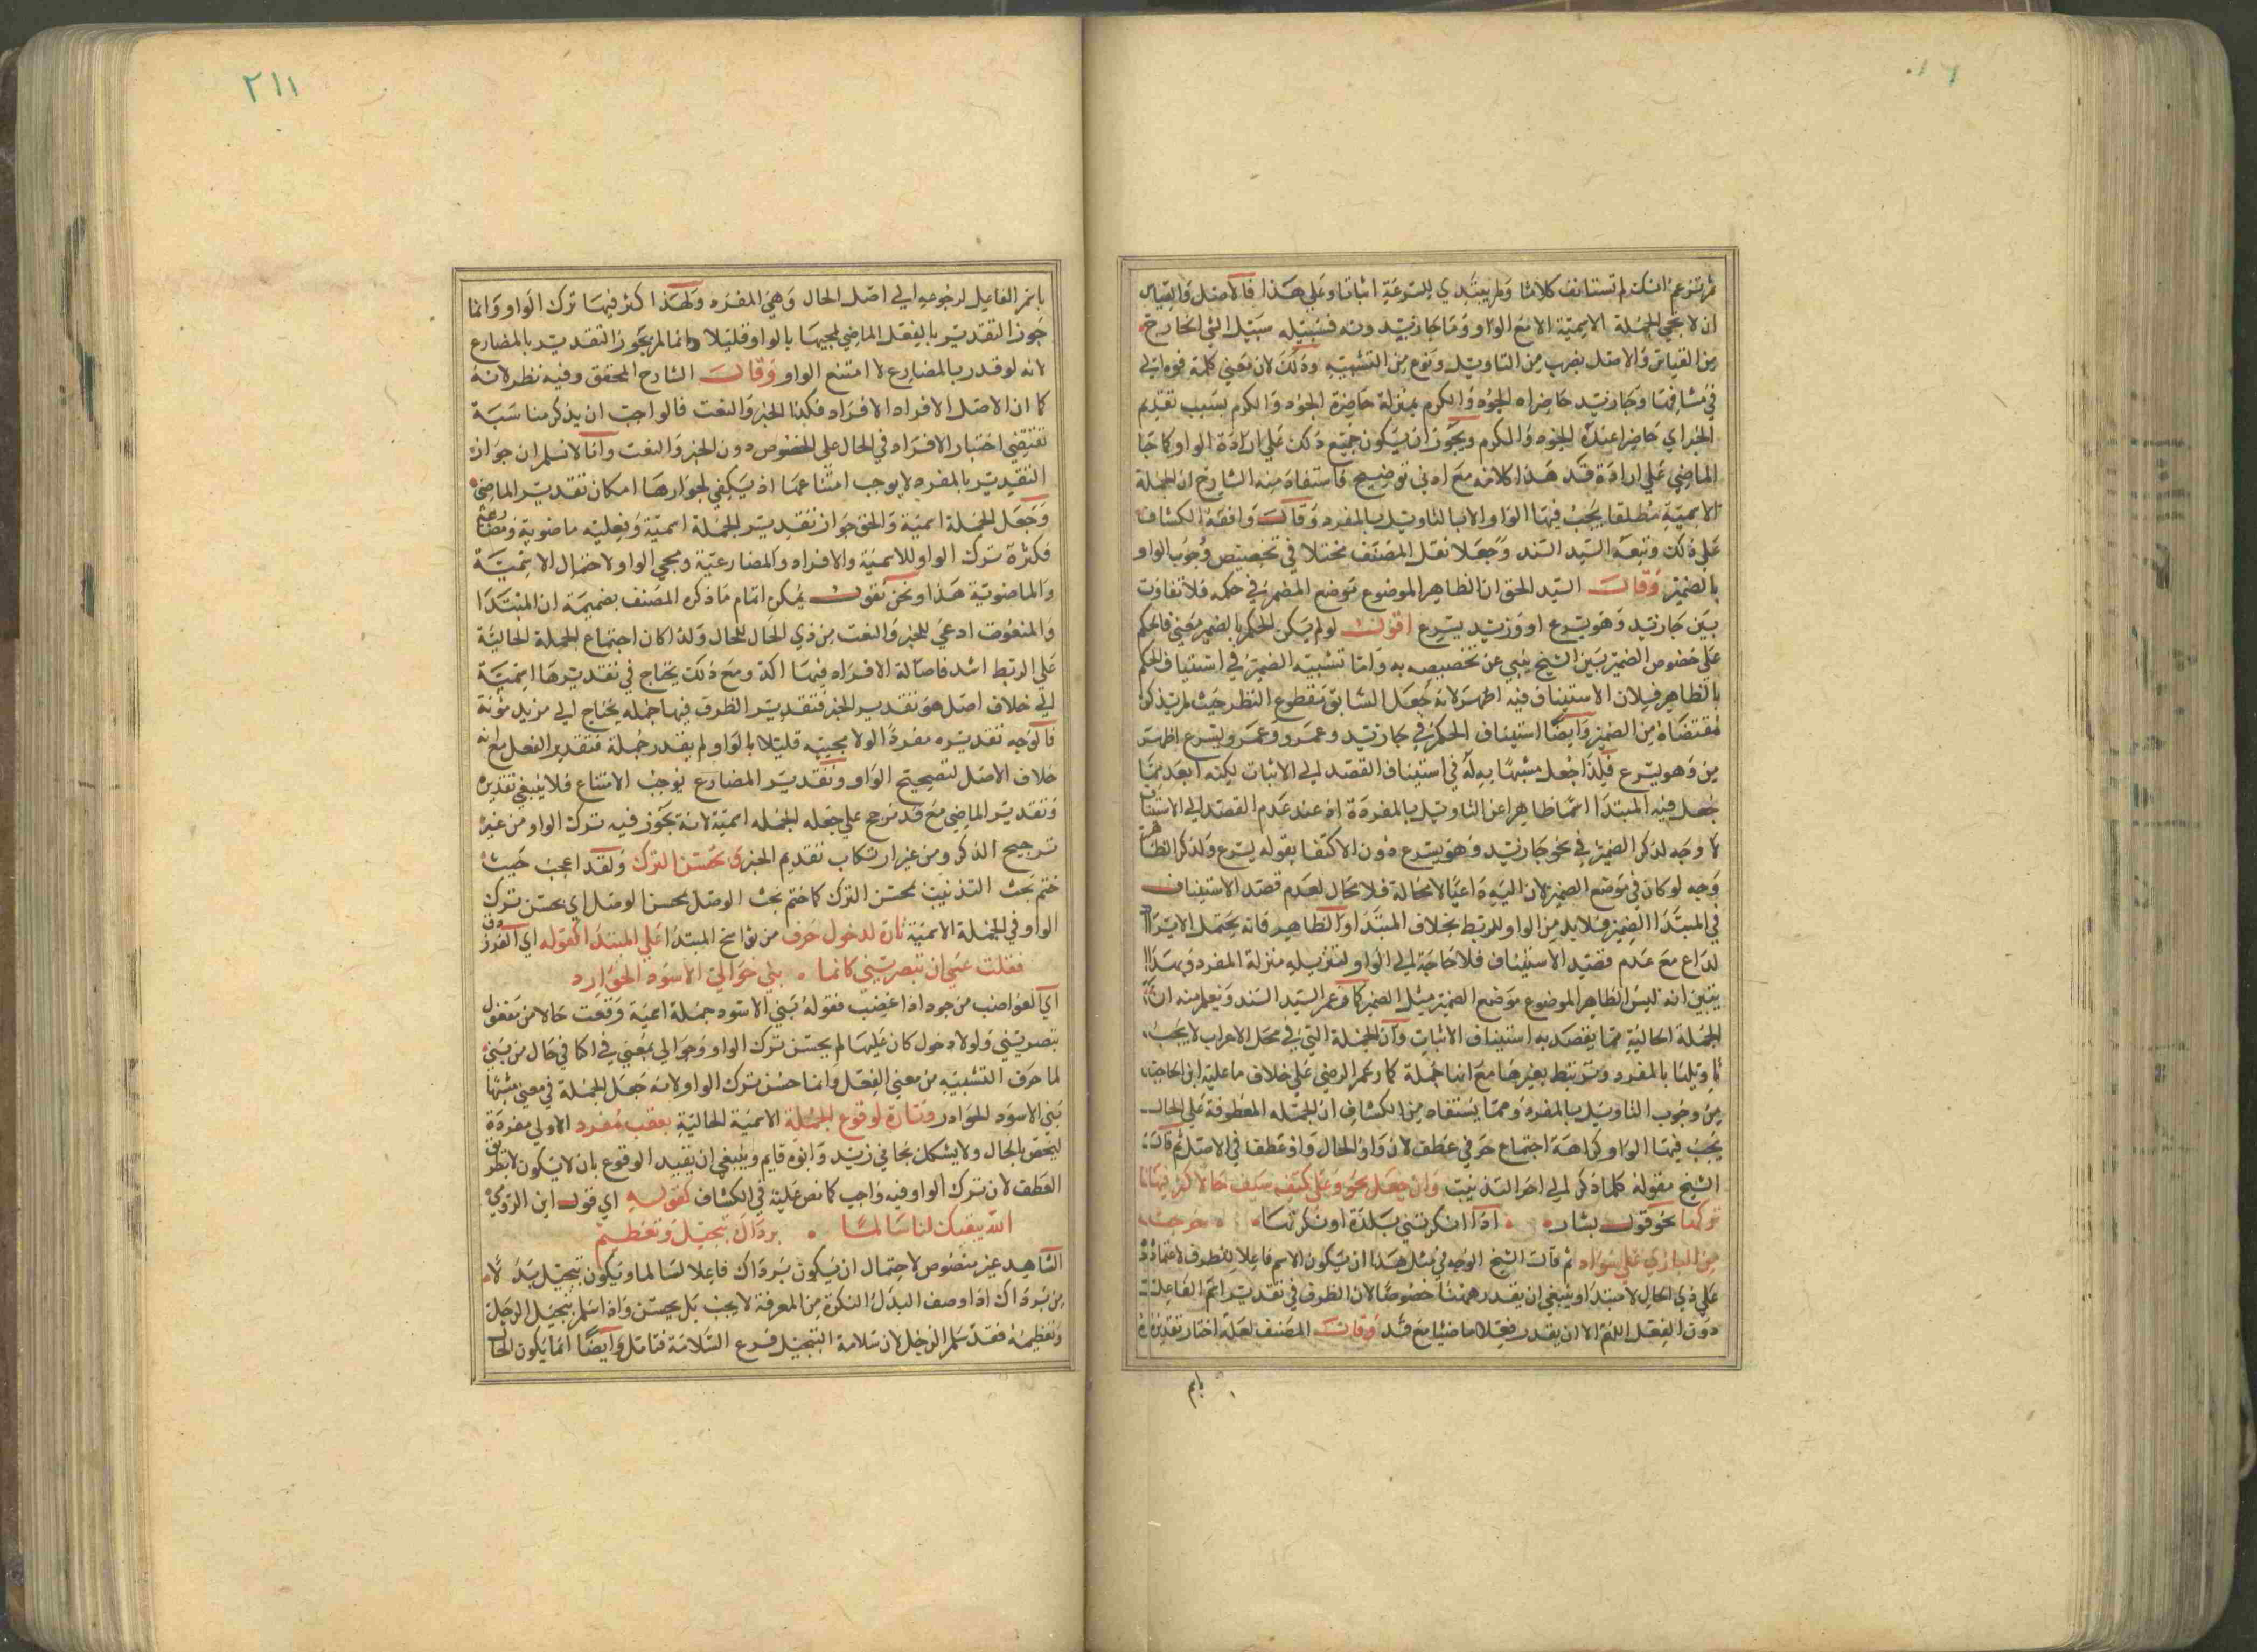 ثم تزعم انك لم تستانف كلاما ولم يبتدي للسرعة اثباتا وعلي هذا فالاصل والقياس
ان لا تجي الجملة الاسمية الا مع الواو وما جا زيد ونه فسبيله سبيل الشي الخارج
من القياس والاصل بضرب من التاويل ونوع من التشبيه وذلك لان معني كلمة فوه الي
في مشافها وجا زيد حاضراه الجود والكرم بمنزلة حاضرة الجود والكرم بسبب تقديم
الخبر اي حاضرا عنده الجود والكرم ويجوز ان يكون جميع ذلك علي ارادة الواو كما جا
الماضي علي ارادة قد هذا كلامه مع ادني توضيح فاستفاد منه الشارح ان الجملة
الاسمية مطلقا يجب فيها الواو الا بالتاويل بالمفرد وقال وافقه الكشاف
علي ذلك وتبعه السيد السند وجعلا نقل المصنف مختلا في تخصيص وجوب الواو
بالضمير وقال السيد الحق ان الظاهر الموضوع موضع المضمر في حكمه فلا تفاوت
بين جا زيد وهو يسرع او وزيد يسرع اقول لو لم يكن للحكم بالضمير معني فالحكم
علي خصوص الضمير بين الشيخ ينبي عن تخصيصه به واما تشبيه الضمير في استيناف الحكم
بالظاهر فلان الاستيناف فيه اظهر لانه جعل السابق مقطوع النظر حيث لم يذكر
مقتضاه من الضمير وايضا استيناف الحكم في جا زيد وعمرو وعمرو يسرع اظهر
من وهو يسرع فلذا جعل مشبها به له في استيناف القصد الي الاثبات لكنه ابعد مما
جعل فيه المبتدا اسما ظاهرا عن التاويل بالمفردة اذ عند عدم القصد الي الاستيناف
لا وجه لذكر الضمير في نحو جا زيد وهو يسرع دون الاكتفا بقوله يسرع ولذكر الظاهر
وجه لو كان في موضع الضمير لان اليه داعيا لا محالة فلا محال لعدم قصد الاستيناف
في المبتدا الضمير فلا بد من الواو للربط بخلاف المبتدا والظاهر فانه يحتمل الايراد
لداع مع عدم قصد الاستيناف فلا حاجة الي الواو لتنزيله منزلة المفرد وبهذا
يتبين انه ليس الظاهر الموضوع موضع الضمير مثل الضمير كما زعم السيد السند ويعلم منه ان
الجملة الحالية مما يقصد به استيناف الاثبات وان الجملة التي في محل الاعراب لا يجب
تاويلها بالمفرد وترتبط بغيرها مع انها جملة كما زعم الرضي علي خلاف ما عليه ابن الحاجب
من وجوب التاويل بالمفرد ومما يستفاد من الكشاف ان الجملة المعطوفة علي الحال
يجب فيها الواو كراهة اجتماع حرفي عطف لان واو الحال واو عطف في الاصل ثم قال
الشيخ مقوله كلما ذكر الي اخر التذنيب وان جعل نحو وعلي كتفه سيف حالا كثر فيها
تركها نحو قول بشار اذا انكرتني بلدة او نكرتها خرجت
مع البازي علي سواد ثم قال الشيخ الوجه في مثل هذا ان يكون الاسم فاعلا للظرف لاعتماده
علي ذي الحال لا مبتدا وينبغي ان يقدر ههنا خصوصا لان الظرف في تقدير اسم الفاعل
دون الفعل اللهم الا ان يقدر فعلا ماضيا مع قد وقال المصنف لعله اختار تقديره
باسم
٢١١
باسم الفاعل لرجوعه الي اصل الحال وهي المفرده ولهذا كثر فيها ترك الواو وانما
جوز التقدير بالفعل الماضي لمجيها بالواو قليلا وانما لم يجوز التقدير بالمضارع
لانه لو قدر بالمضارع لامتنع الواو وقال الشارح المحقق وفيه نظر لانه
كما ان الاصل الافراد الافراد فكذا الخبر والنعت فالواجب ان يذكر مناسبة
تقتضي اختيار الافراد في الحال علي الخصوص دون الخبر والنعت وانا لا نسلم ان جواز
التقدير بالمفرد لا يوجب امتناعها اذ يكفي لجوازها امكان تقدير الماضي
وجعل الجملة اسمية والحق جواز تقدير الجملة اسمية وفعلية ماضوية ومضارعية
فكثرة ترك الواو للاسمية والافراد والمضارعية ومجي الواو لاحتمال الاسمية
والماضوية هذا ونحن نقول يمكن اتمام ما ذكره المصنف بضميمة ان المبتدا
والمنعوت ادعي للخبر والنعت من ذي الحال للحال ولذا كان احتياج الجملة الحالية
علي الربط اشد فاصالة الافراد فيها اكد ومع ذلك يحتاج في تقديرها اسمية
الي خلاف اصل هو تقدير الخبر فتقدير الظرف فيها جملة يحتاج الي مزيد مونة
فالوجه تقديره مفردا لولا مجييه قليلا بالواو ولم يقدر جملة فتقدير الفعل مع انه
خلاف الاصل لتصحيح الواو وتقدير المضارع يوجب الامتناع فلا ينبغي تقديره
وتقدير الماضي مع قد مرجح علي جعله الجملة اسمية لانه يجوز فيه ترك الواو من غير
ترجيح الذكر ومن غير ارتكاب تقديم الخبر ويحسن الترك ولقد اعجب حيث
ختم بحث التذنيب بحسن الترك كما ختم بحث الوصل بحسن الوصل اي يحسن ترك
الواو في الجملة الاسمية تارة لدخول حرف من نواسخ المبتدا علي المبتدا كقوله اي الفرزدق
فقلت عسي ان تبصريني كانما بني حوالي الاسود الحوارد
اي الغواضب من حرد اذا غضب فقوله بني الاسود جملة اسمية وقعت حالا من مفعول
تبصريني ولولا دخول كان عليها لم يحسن ترك الواو وحوالي بمعني في اكنافي حال من بني
لما حرف التشبيه من معني الفعل وانما حسن ترك الواو لانه جعل الجملة في معني مشبها
بني الاسود الحوارد وتارة لوقوع الجملة الاسمية الحالية بعقب مفرد الاولي مفردة
ليخص بالحال ولا يشكل بجاني زيد وابوه قايم وينبغي ان يقيد الوقوع بان لا يكون لا بطريق
العطف لان ترك الواو فيه واجب كما نص عليه في الكشاف كقوله اي قول ابن الرومي
الله يبقيك لنا سالما برداك تبجيل وتعظيم
الشاهد غير منصوص لاحتمال ان يكون برداك فاعلا لسالما ويكون تبجيل بدلا
من برداك اذا وصف البدل النكرة من المعرفة لا يجب بل يحسن واذا سلم تبجيل الرجل
وتعظيمه فقد سلم الرجل لان سلامة التبجيل فرع السلامة فتامل وايضا انما يكون الحال